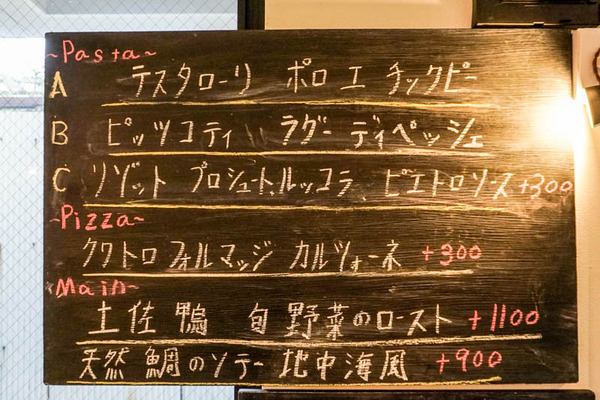 ~Pasta~
A テスタローリ ポロ エ チックピー
B ピッツコティ ラグー ディペッシェ
C リゾット プロシュート、ルッコラ、ピエトロソース +300
~Pizza~
クワトロ フォルマッジ カルツォーネ +300
~Main~
土佐鴨 旬野菜のロースト +1100
天然鯛のソテー 地中海風 +900